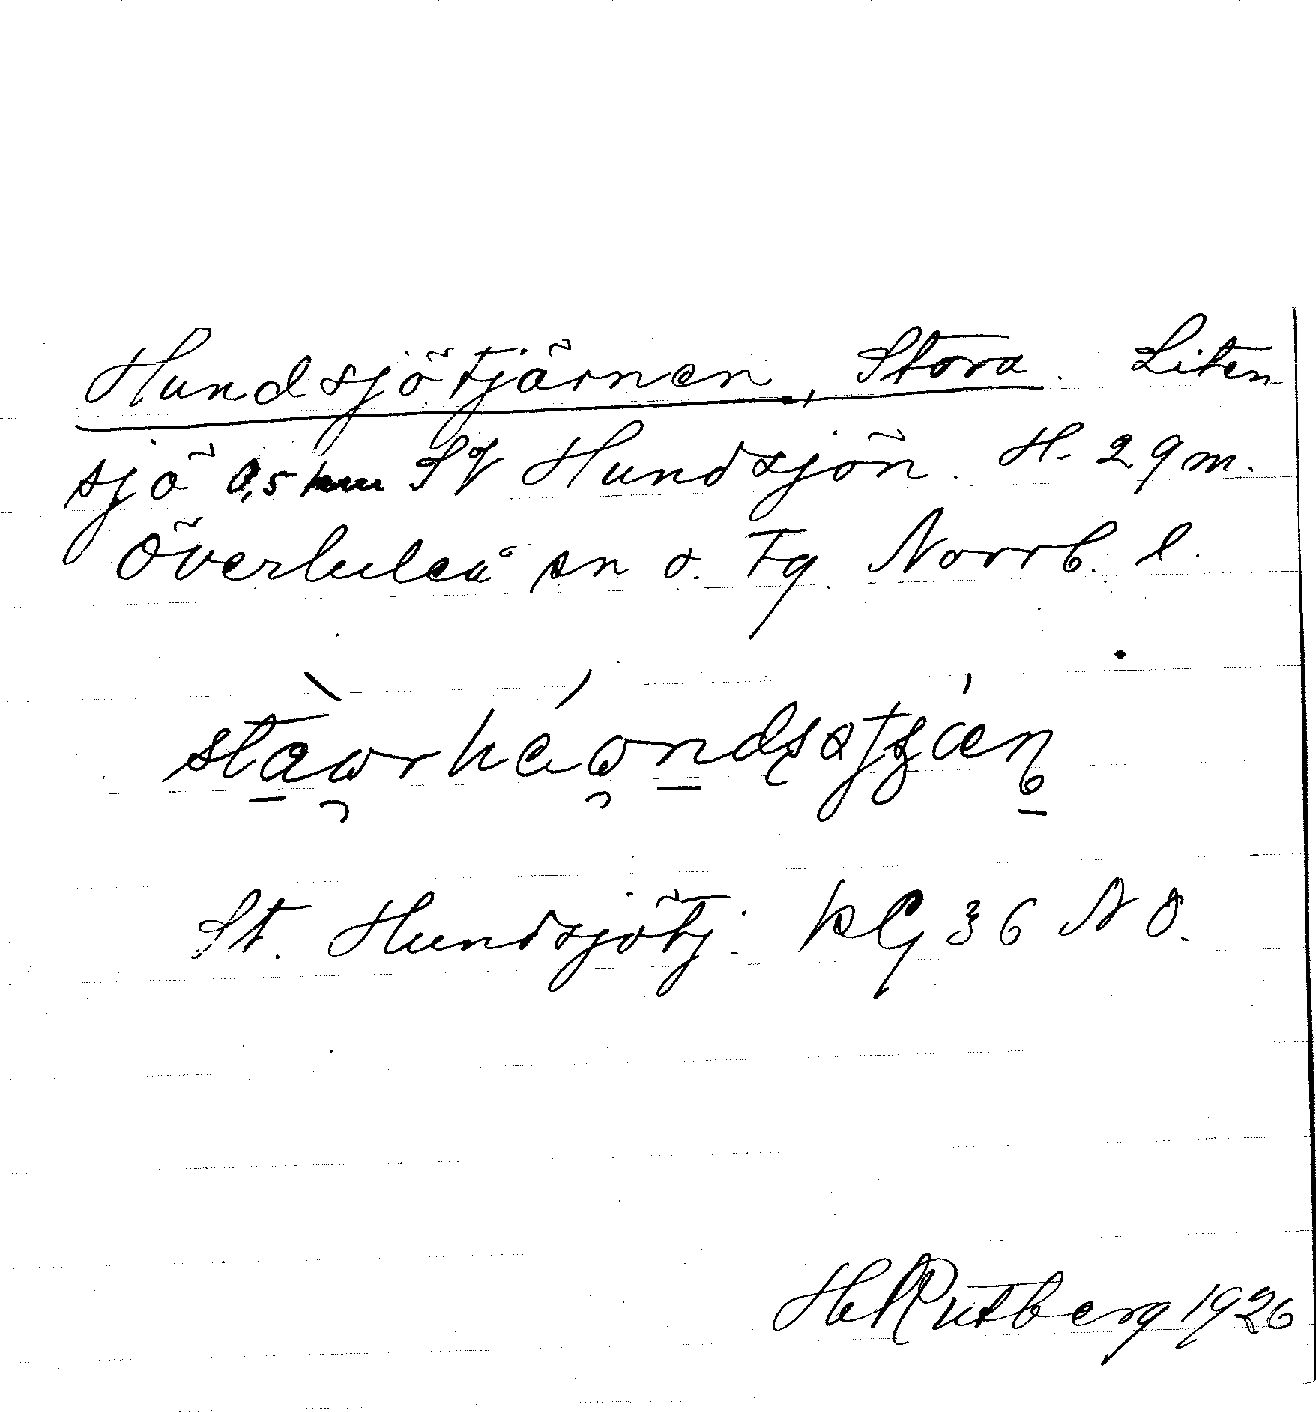 Hundsjötjärnen, Stora. Liten
sjö 0,5 km SV Hundsjön. H. 29 m.
Överluleå sn o. tg. Norrb. l.
St. Hundsjötj. kG 36 NÖ.
H Rutberg 1926